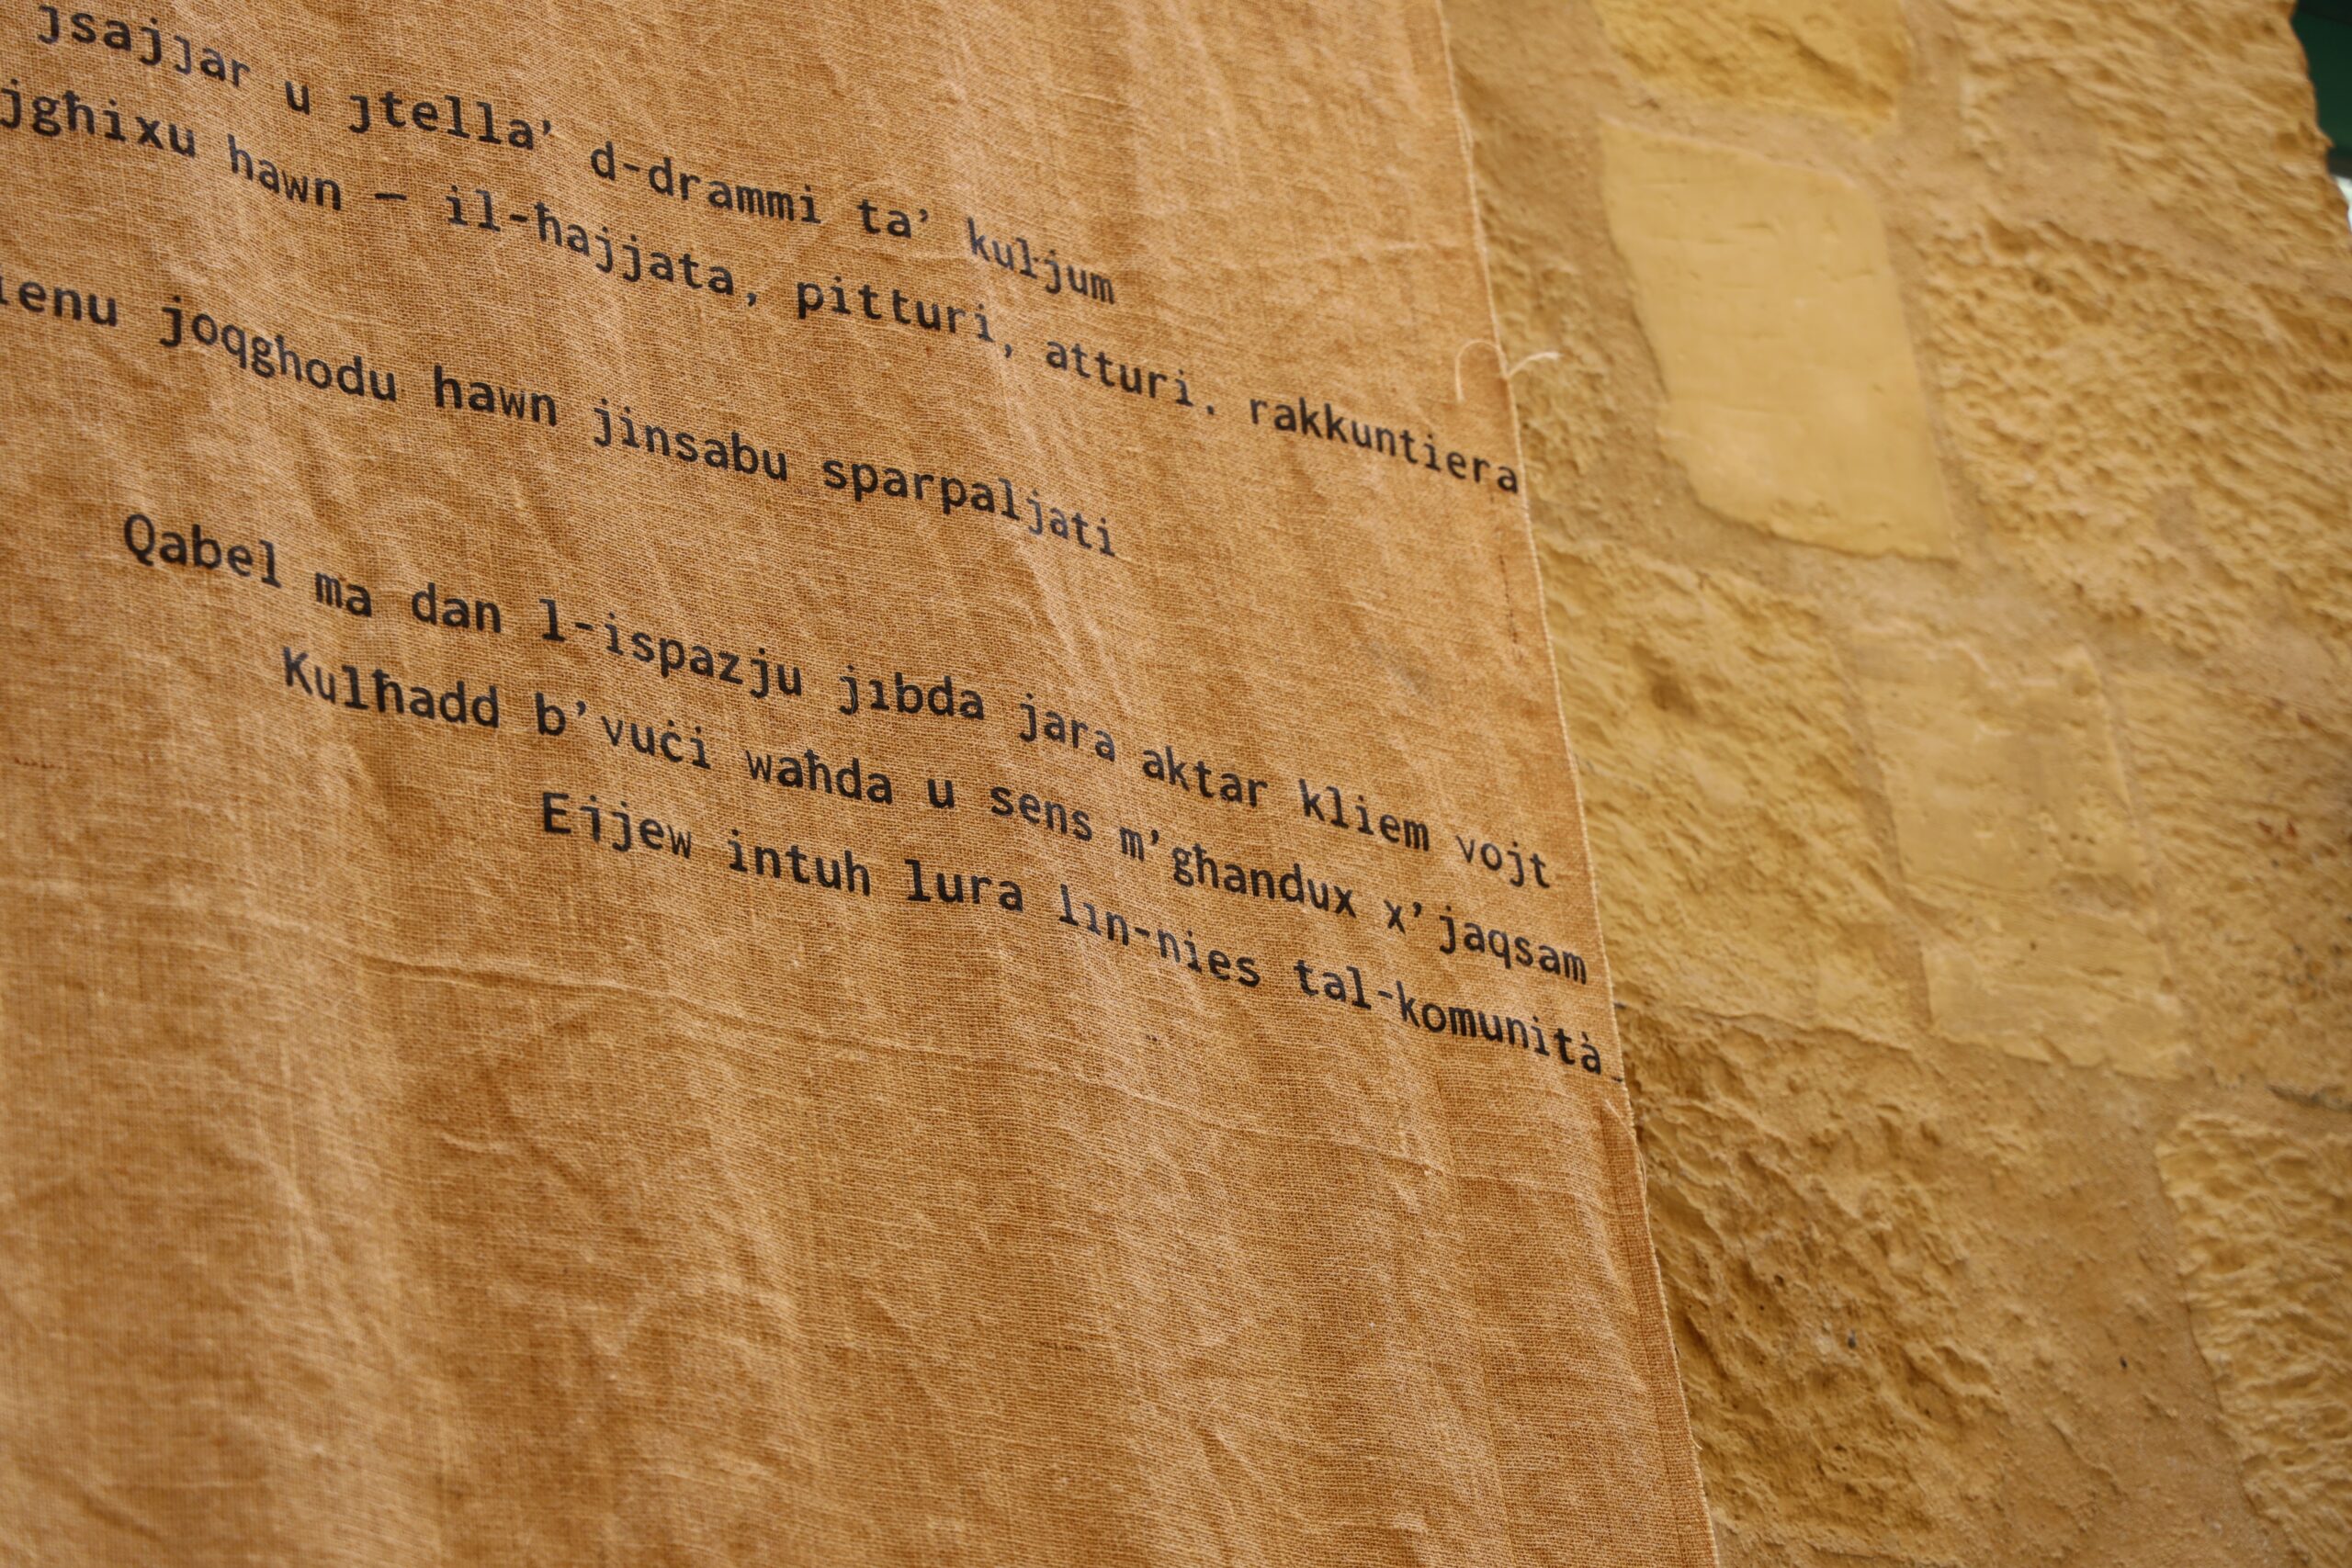 jsajjar u jtella' d-drammi ta' kuljum
jgħixu hawn – il-ħajjata, pitturi, atturi, rakkuntiera
joqgħodu hawn jinsabu sparpaljati
Qabel ma dan l-ispazju jibda jara aktar kliem vojt
Kulħadd b'vuċi waħda u sens m'għandux x'jaqsam
Ejjew intuh lura lin-nies tal-komunità